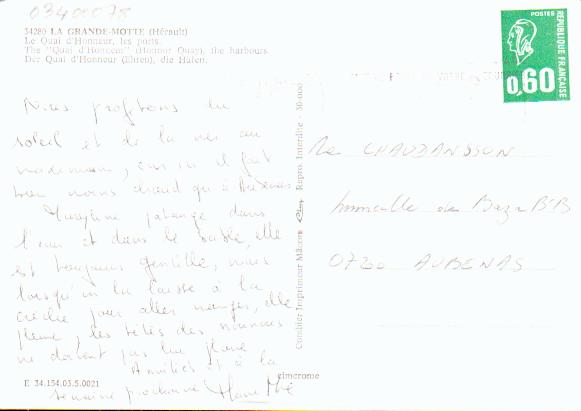 03400078
34280 LA GRANDE-MOTTE (Hérault)
Le Quai d'Honneur, les ports.
The "Quai d'Honneur" (Honnor Quay), the harbours.
Der Quai d'Honneur (Ehren), die Häfen.
POSTES
REPUBLIQUE FRANÇAISE
0,60
Nous profitons du
soleil et de la mer au
maximum, car ici il fait
bien moins chaud qu'à Aubenas
Maryline patauge dans
l'eau et dans le sable, elle
est toujours gentille, mais
lorsqu'on la laisse à la
crèche pour aller manger, elle
pleure, les têtes des nounous
ne doivent pas lui plaire
Amitiés et à la
semaine prochaine
Combier Imprimeur Mâcon
Repro. Interdite - 30-000
cimcrome
E 34.154.05.5.0021
CHAUBANSSON
Immeuble
07200 AUBENAS